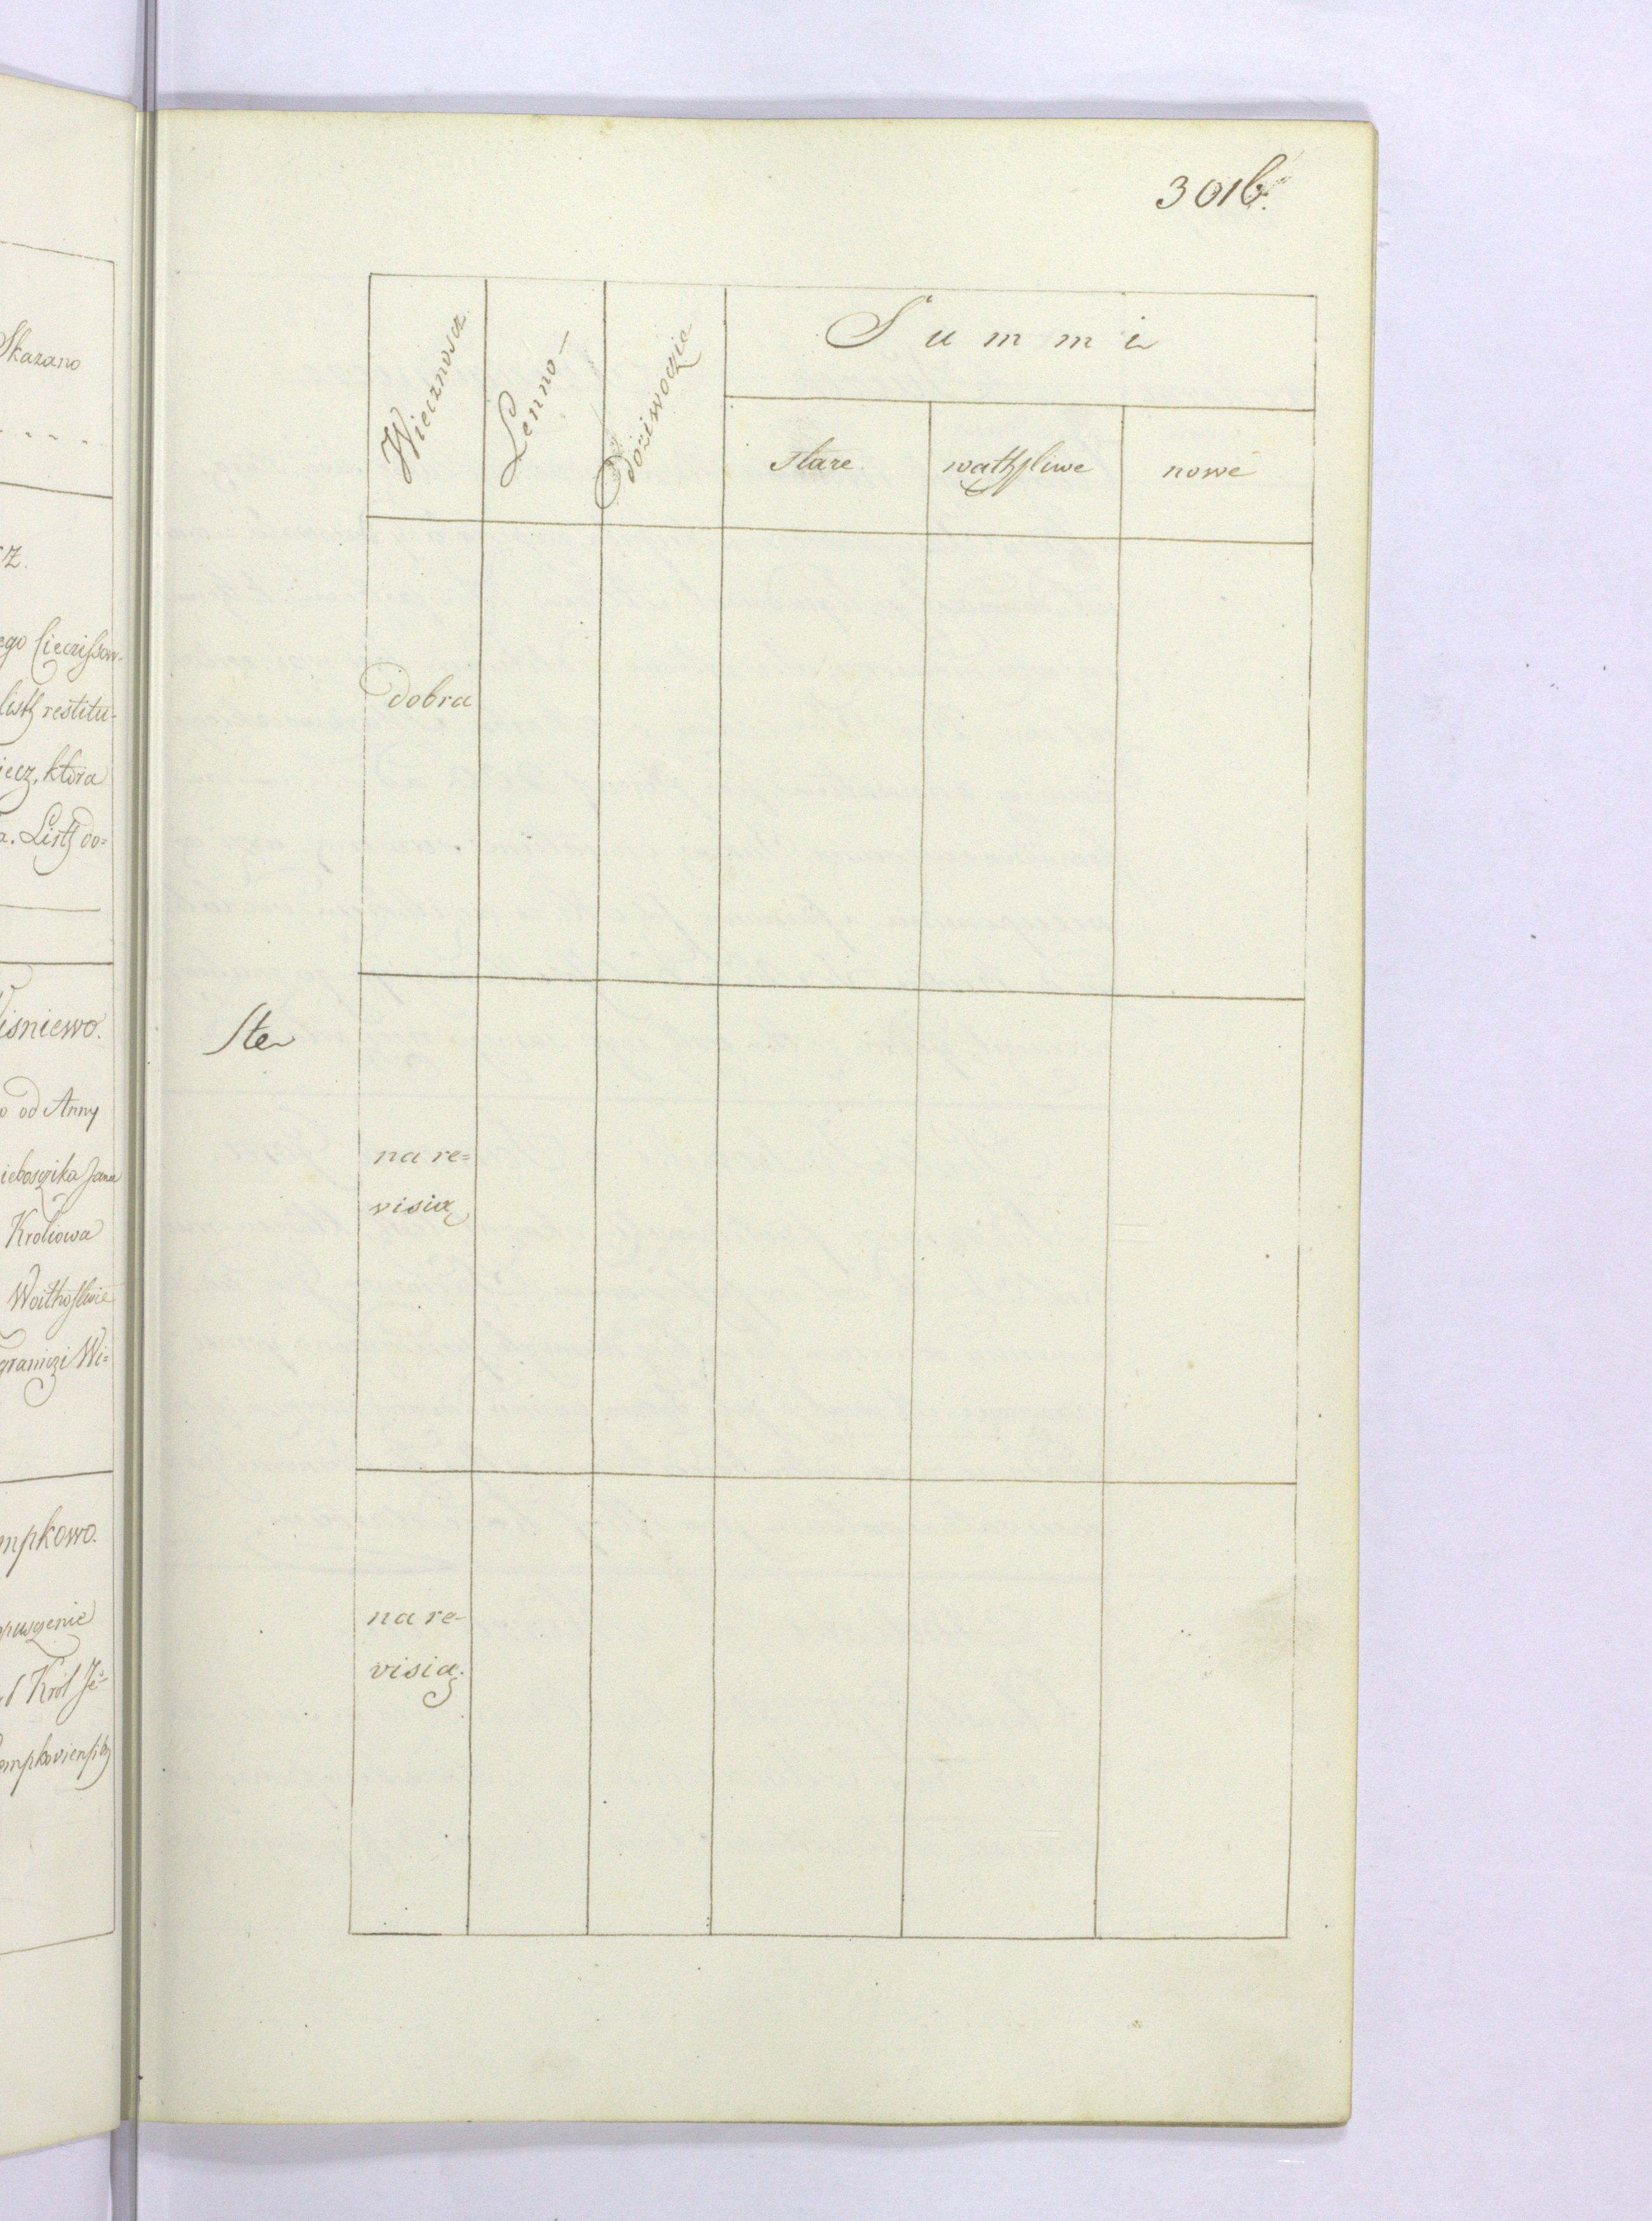 Skazano
cz.
ego Cieczissow-
listh restitu-
iecz, ktora
a. Listh do=
isniewo.
o od Anny
ieboszika Jana
Kroliowa
Woithosliwie
granizi Wi=
mpkowo.
puszenie
Krol Je-
empkoviensi
301b.
Wiecznoscz
Lenno-
dożiwoczie
Summi
stare
wathpliwe
nowe
dobra
Ste
na re=
visią
na re-
visią.